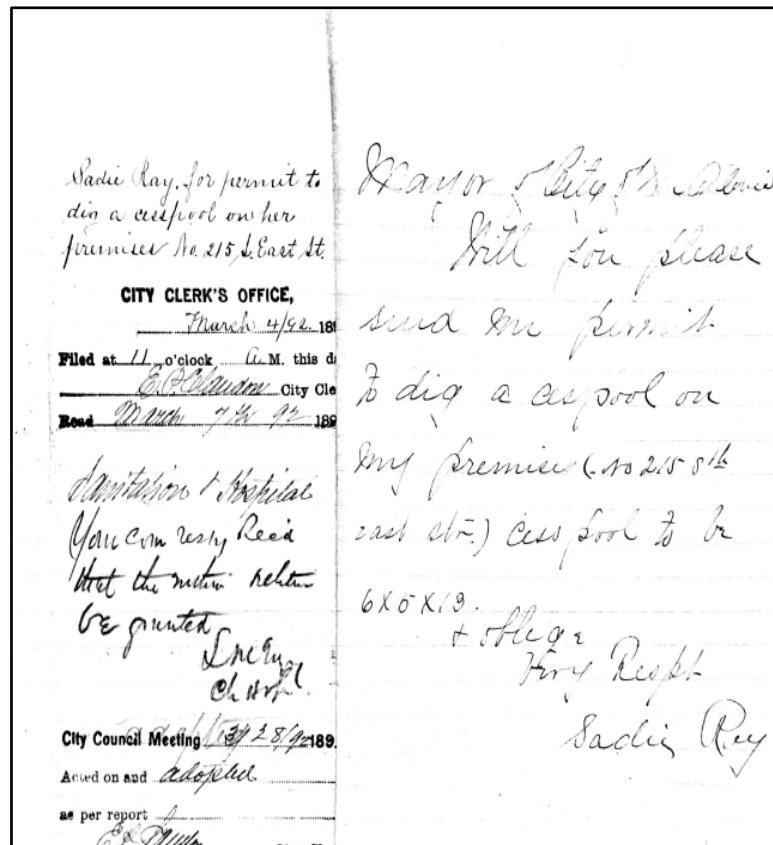 Sadie Ray, for permit to
dig a cesspool on her
premises No. 215 S. East St.
CITY CLERK'S OFFICE,
March 4/92 189
Filed at 11 o'clock A. M. this d
City Cle
Read March 7th 92 189
Sanitation & Hospital
Your com resply Recd
that the within petition
be granted
City Council Meeting 3/28/92 189
Acted on and adopted
as per report
Mayor of City of
Will you please
send me permit
to dig a cesspool on
my premises (No 215 Sth
east str.) cesspool to be
6X5X13.
& oblige
Very Respt
Sadie Ray